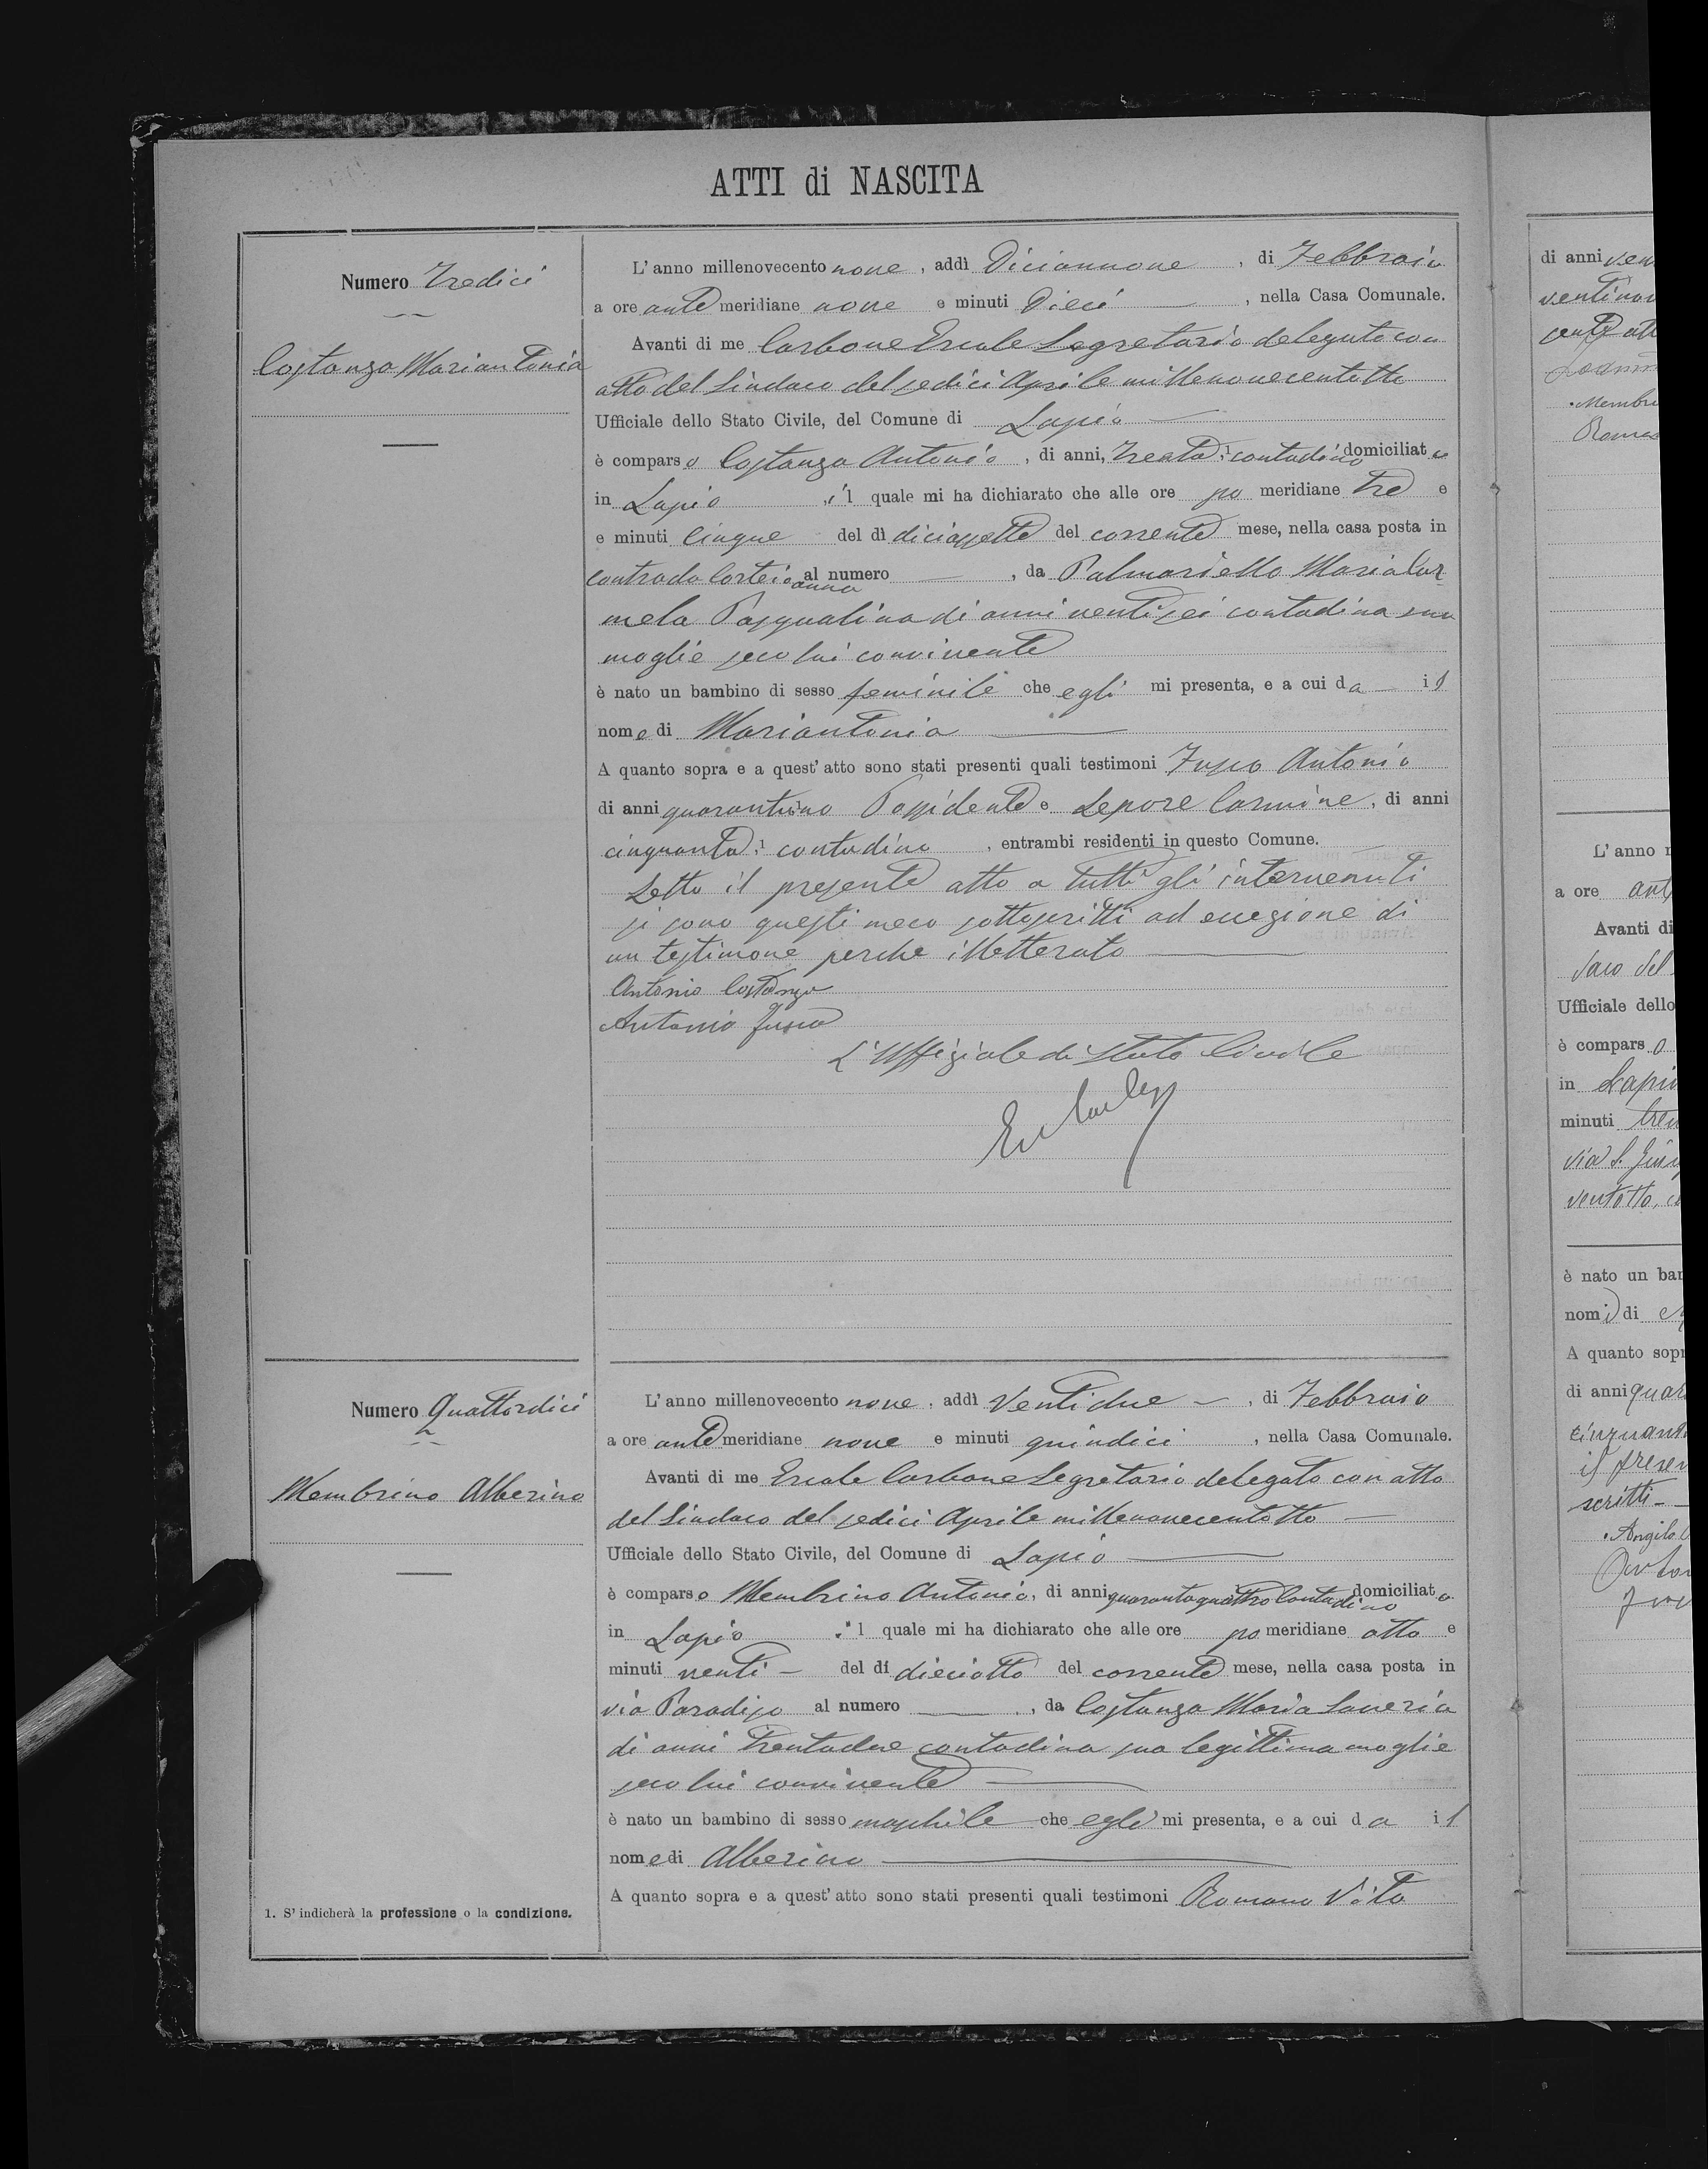 ATTI di NASCITA
Numero Tredici
Costanza Mariantonia
L'anno millenovecento nove, addì Diciannove, di Febbraio
a ore ante meridiane nove e minuti Dieci, nella Casa Comunale.
Avanti di me Carbone Ercole Segretario delegato con
atto del Sindaco del sedici Aprile millenovecentotto
Ufficiale dello Stato Civile, del Comune di Lapio
è comparso Costanza Antonio, di anni, Trenta, contadino domiciliato
in Lapio, il quale mi ha dichiarato che alle ore po meridiane tre e
e minuti Cinque del dì diciassette del corrente mese, nella casa posta in
contrada al numero — , da Palmariello Maria Car
mela Pasqualina di anni ventisei contadina sua
moglie seco lui convivente
è nato un bambino di sesso feminile che egli mi presenta, e a cui da — il
nome di Mariantonia
A quanto sopra e a quest'atto sono stati presenti quali testimoni Fusco Antonio
di anni quarantuno Possidente e Lepore Carmine, di anni
cinquanta, contadino, entrambi residenti in questo Comune.
Letto il presente atto a tutti gli intervenuti
si sono questi meco sottoscritti ad ecezione di
un testimone perche illetterato
Antonio Costanza
Antonio Fusco
L'Uffiziale di Stato Civile
Numero Quattordici
Membrino Alberino
L'anno millenovecento nove, addì Ventidue —, di Febbraio
a ore ante meridiane nove e minuti quindici, nella Casa Comunale.
Avanti di me Ercole Carbone Segretario delegato con atto
del Sindaco del sedici Aprile millenovecentotto —
Ufficiale dello Stato Civile, del Comune di Lapio
è comparso Membrino Antonio, di anni quarantaquattro Contadino domiciliato
in Lapio il quale mi ha dichiarato che alle ore po meridiane otto e
minuti venti — del dì dieciotto del corrente mese, nella casa posta in
via Paradiso al numero — , da Costanza Maria Saveria
di anni Trentadue contadina sua legittima moglie
seco lui convivente
è nato un bambino di sesso maschile che egli mi presenta, e a cui da il
nome di Alberino
A quanto sopra e a quest'atto sono stati presenti quali testimoni Romano Vito
1. S'indicherà la professione o la condizione.
di anni
L'anno
a ore
Avanti di
Ufficiale dello
è comparso
in Lapio
minuti
è nato un
nomi di
A quanto
di anni